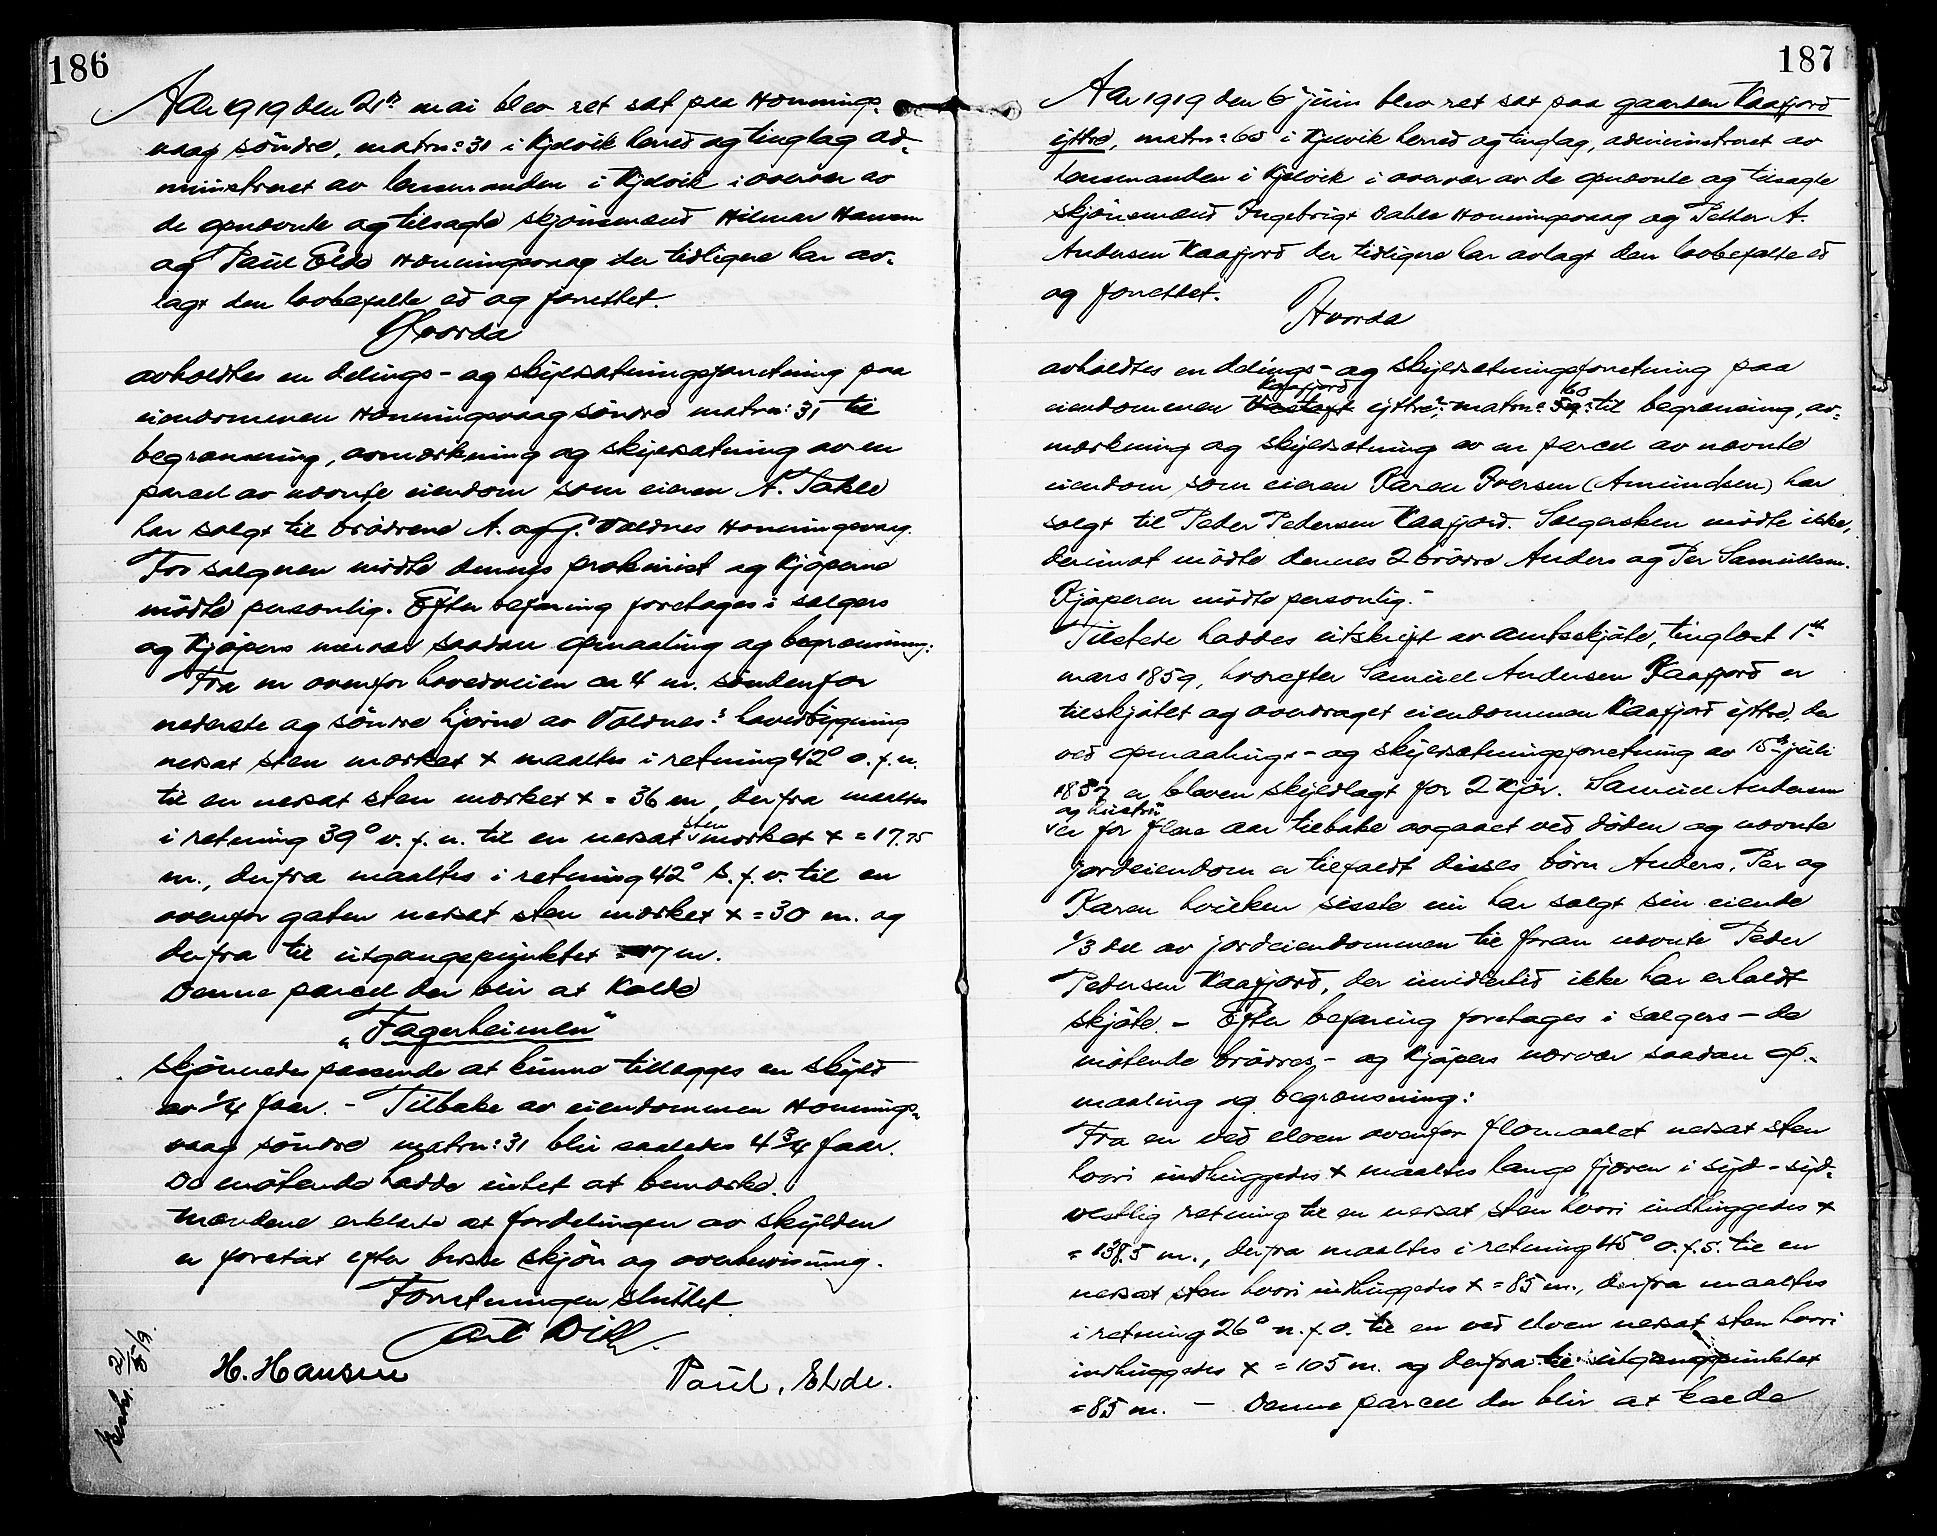 186
Aar 1919 den 21de mai blev ret sat paa Honnings-
vaag søndre, matrn: 31 i Kjelvik herred og tinglag ad-
ministreret av lensmanden i Kjelvik i overvær av
de opnævnte og tilsagte skjønsmænd Hilmar Hansen
og Paul Elde Honningsvaag der tidligere har av-
lagt den lovbefalte ed og forrettet.
Hvorda
avholdtes en delings- og skyldsætningsforretning paa
eiendommen Honningsvaag søndre matrn: 31 til
begrænsning, avmerkning og skyldsætning av en
parcel av nævnte eiendom som eieren A. Takle
har solgt til brødrene A. og J. Valdnes Honningsvaag.
For sælgeren mødte dennes prokurist og kjøperne
mødte personlig. Efter befaring foretages i sælgers
og kjøpers nærvær saadan opmaaling og begrænsning:
Fra en ovenfor hovedveien ca 4 m. søndenfor
nederste og søndre hjørne av Valdnes's hovedbygning
nedsat sten merket x maaltes i retning 42° o.f.n.
til en nedsat sten merket x = 36 m, derfra maaltes
i retning 39° v.f.n. til en nedsat sten merket x = 17.75
m., derfra maaltes i retning 42° s.f.v. til en
ovenfor gaten nedsat sten merket x = 30 m. og
derfra til utgangspunktet = 17 m.
Denne parcel der blir at kalde
"Fagerheimen"
skjønnedes passende at kunne tillægges en skyld
av 1/4 faar. - Tilbake av eiendommen Honnings-
vaag søndre matrn: 31 blir saaledes 4 3/4 faar.
De møtende hadde intet at bemerke.
Mændene erklærte at fordelingen av skylden
er foretat efter beste skjøn og overbevisning.
Forretningen sluttet.
H. Hansen Paul, Elde.
21/5 19.
187
Aar 1919 den 6 juni blev ret sat paa gaarden Kaafjord
ytre, matrn: 60 i Kjelvik herred og tinglag, administreret av
lensmanden i Kjelvik i overvær av de opnævnte og tilsagte
skjønsmænd Ingebrigt Dahle Honningsvaag og Petter A.
Andersen Kaafjord der tidligere har avlagt den lovbefalte ed
og forrettet.
Hvorda
avholdtes en delings- og skyldsætningsforretning paa
eiendommen Kaafjord ytre: matrn: 60 til begrænsning, av-
merkning og skyldsætning av en parcel av nævnte
eiendom som eieren Karen Iversen (Amundsen) har
solgt til Peder Pedersen Kaafjord. Sælgersken mødte ikke,
derimot mødte dennes 2 brødre Anders og Per Samuelsen.
Kjøperen mødte personlig. -
Tilstede haddes utskrift av amtsskjøte, tinglæst 1ste
mars 1859, hvorefter Samuel Andersen Kaafjord er
tilskjøtet og overdraget eiendommen Kaafjord ytre, der
ved opmaalings- og skyldsætningsforretning av 15de juli
1857 er bleven skyldlagt for 2 kjør. Samuel Andersen
og hustru
er for flere aar tilbake avgaaet ved døden og nævnte
jordeiendom er tilfaldt disses børn Anders, Per og
Karen hvilken sidste nu har solgt sin eiende
1/3 del av jordeiendommen til foran nævnte Peder
Pedersen Kaafjord, der imidlertid ikke har erholdt
skjøte. - Efter befaring foretages i sælgers - de
møtende brødres - og kjøpers nærvær saadan op-
maaling og begrænsning:
Fra en ved elven ovenfor flomaalet nedsat sten
hvori indhuggedes x maaltes langs fjæren i syd-syd-
vestlig retning til en nedsat sten hvori indhuggedes x
= 138.5 m., derfra maaltes i retning 45° o.f.s. til en
nedsat sten hvori indhuggedes x = 85 m., derfra maaltes
i retning 26° n.f.o. til en ved elven nedsat sten hvori
indhuggedes x = 105 m. og derfra til utgangspunktet
= 85 m. - Denne parcel der blir at kalde